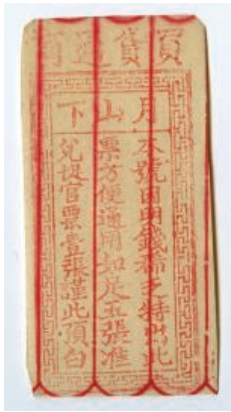 買貨通用
月山下
本號因明錢稀乏特出此
票方便通用如足五張准
兌換官票壹張謹此預白